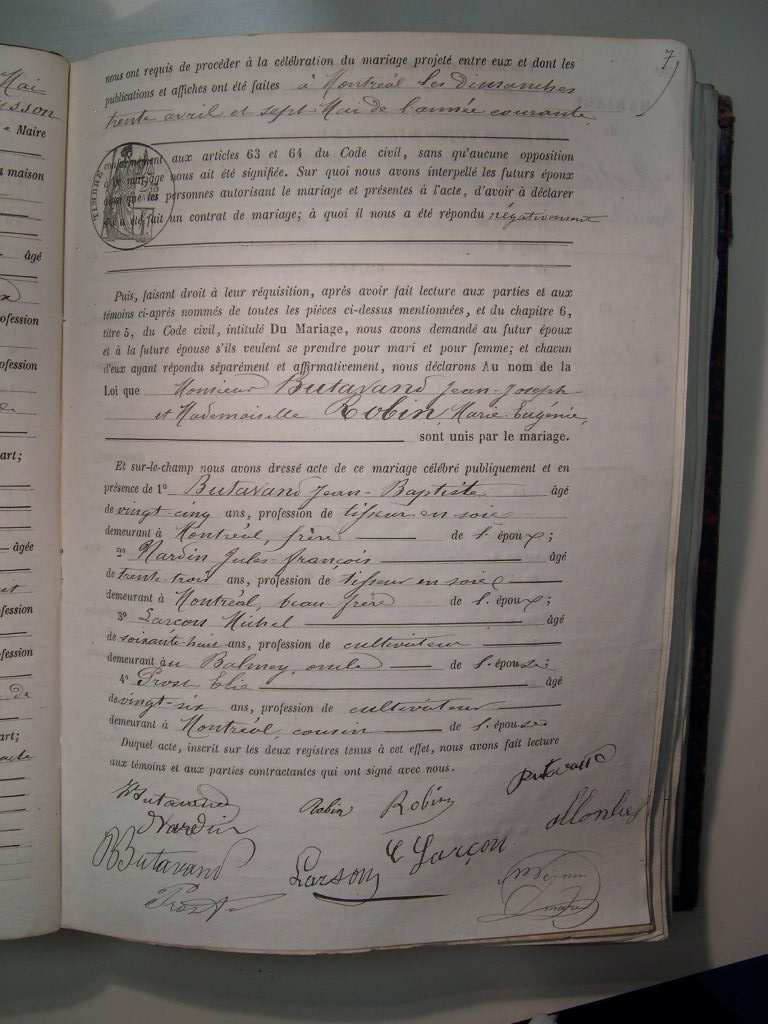 Mai
7
nous ont requis de procéder à la célébration du mariage projeté entre eux et dont les
« Maire
publications et affiches ont été faites à Montréal les Dimanches
trente avril et sept Mai de l'année courante
maison
conformément aux articles 63 et 64 du Code civil, sans qu'aucune opposition
à ce mariage nous ait été signifiée. Sur quoi nous avons interpellé les futurs époux
TIMBRE
ainsi que les personnes autorisant le mariage et présentes à l'acte, d'avoir à déclarer
s'il a été fait un contrat de mariage; à quoi il nous a été répondu négativement
âgé
Puis, faisant droit à leur réquisition, après avoir fait lecture aux parties et aux
témoins ci-après nommés de toutes les pièces ci-dessus mentionnées, et du chapitre 6,
titre 5, du Code civil, intitulé Du Mariage, nous avons demandé au futur époux
et à la future épouse s'ils veulent se prendre pour mari et pour femme; et chacun
d'eux ayant répondu séparément et affirmativement, nous déclarons Au nom de la
Loi que Monsieur Butavand Jean-Joseph
et Mademoiselle Robin, Marie-Eugénie,
sont unis par le mariage.
Et sur-le-champ nous avons dressé acte de ce mariage célébré publiquement et en
présence de 1° Butavand Jean-Baptiste âgé
de vingt-cinq ans, profession de tisseur en soie
demeurant à Montréal, frère de l'époux;
2° Nardin Jules-françois âgé
de trente-trois ans, profession de tisseur en soie
demeurant à Montréal, beau-frère de l'époux;
3° Larçon Michel âgé
de soixante-huit ans, profession de cultivateur
demeurant au Balmay, oncle de l'épouse;
4° Prost Elie âgé
de vingt-six ans, profession de cultivateur
demeurant à Montréal, cousin de l'épouse
Duquel acte, inscrit sur les deux registres tenus à cet effet, nous avons fait lecture
aux témoins et aux parties contractantes qui ont signé avec nous.
Butavand Robin Robin Butavand
Nardin
Butavand Larson Larçon
Prost